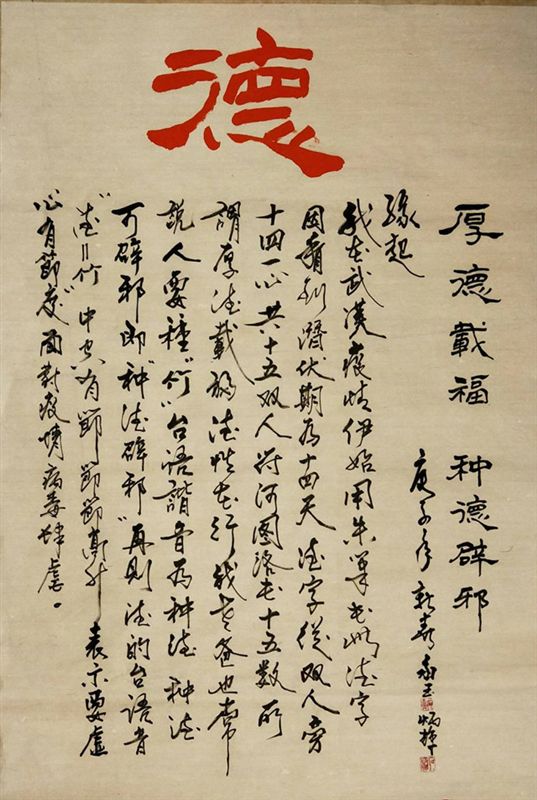 德
厚德載福 种德辟邪
庚子年新春 炳輝
緣起
我在武漢疫情伊始用朱筆書此德字
因看到潛伏期为十四天德字從双人旁
十四一心共十五双人符河图洛書十五數所
謂厚德載福德性在行我老爸也常
説人要種"竹"台语諧音为种德种德
可辟邪即"种德辟邪"再則德的台語音
"德=竹"中空有節節節高升表示要虛
心有節度"面對疫情病毒肆虐。